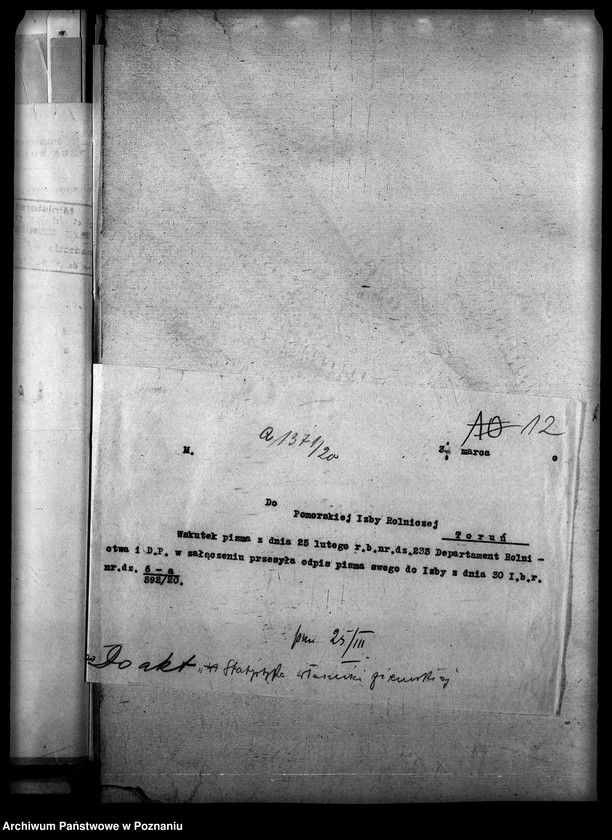 10 12
M. a 1371/20 3. marca
Do
Pomorskiej Izby Rolniczej
Toruń
Wskutek pisma z dnia 25 lutego r.b.nr.dz.235 Departament Rolni-
ctwa i D.P. w załączeniu przesyła odpis pisma swego do Izby z dnia 30 I.b.r.
nr.dz. 6 - a
592/20.
25/III
Do akt „Statystyka własności ziemskiej"
Archiwum Państwowe w Poznaniu